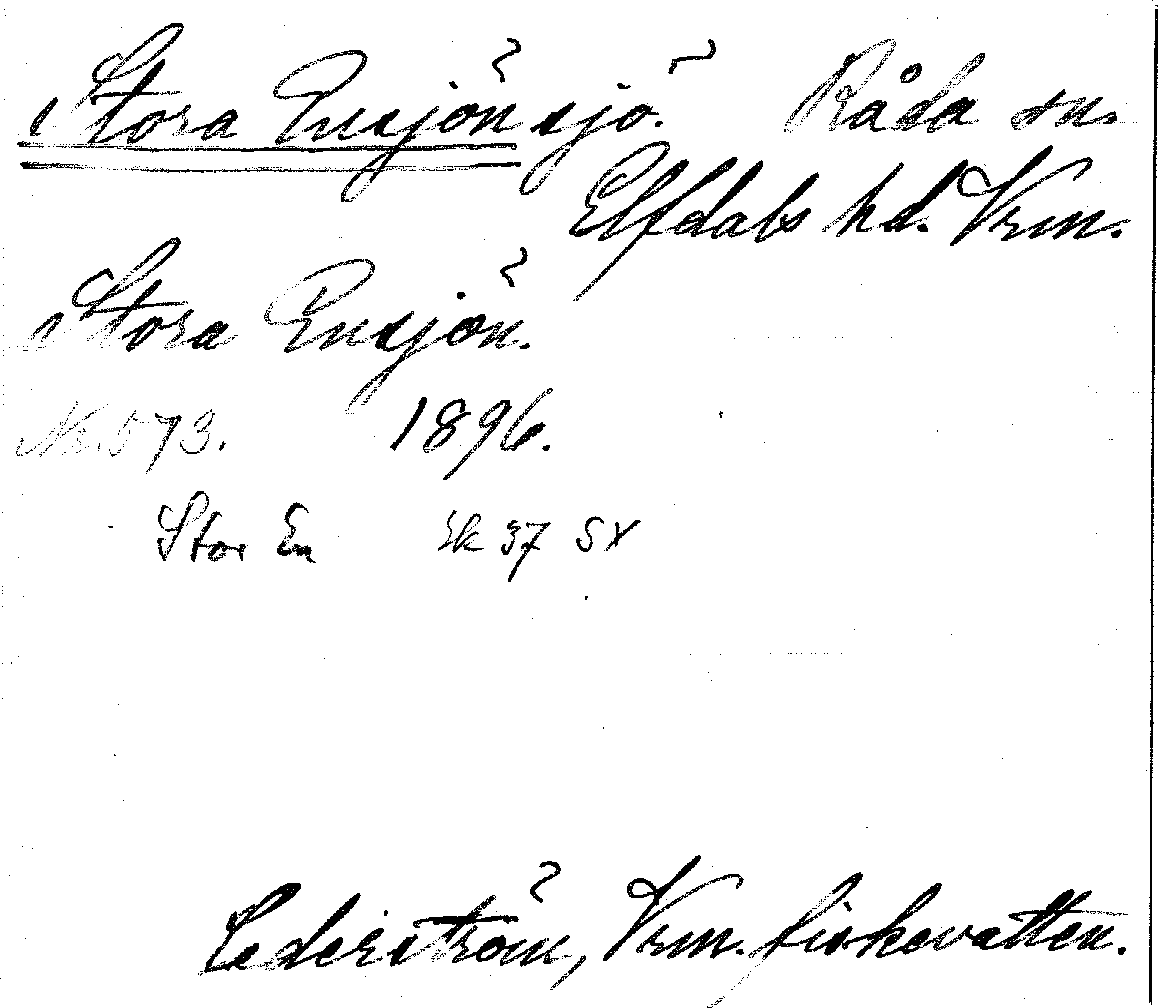 Stora Ensjön sjö. Råda sn.
Elfdals hd. Vrm.
Stora Ensjön.
Nr. 573. 1896.
Stor En Ek 37 SV
Cederström, Vrm. fiskevatten.